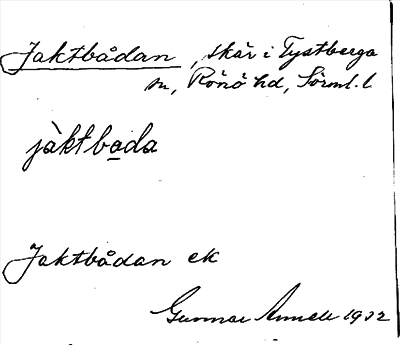 Jaktbådan, skär i Tystberga
sn, Rönö hd, Sörml. l.
jàktbada
Jaktbådan ek
Gunnar 1932